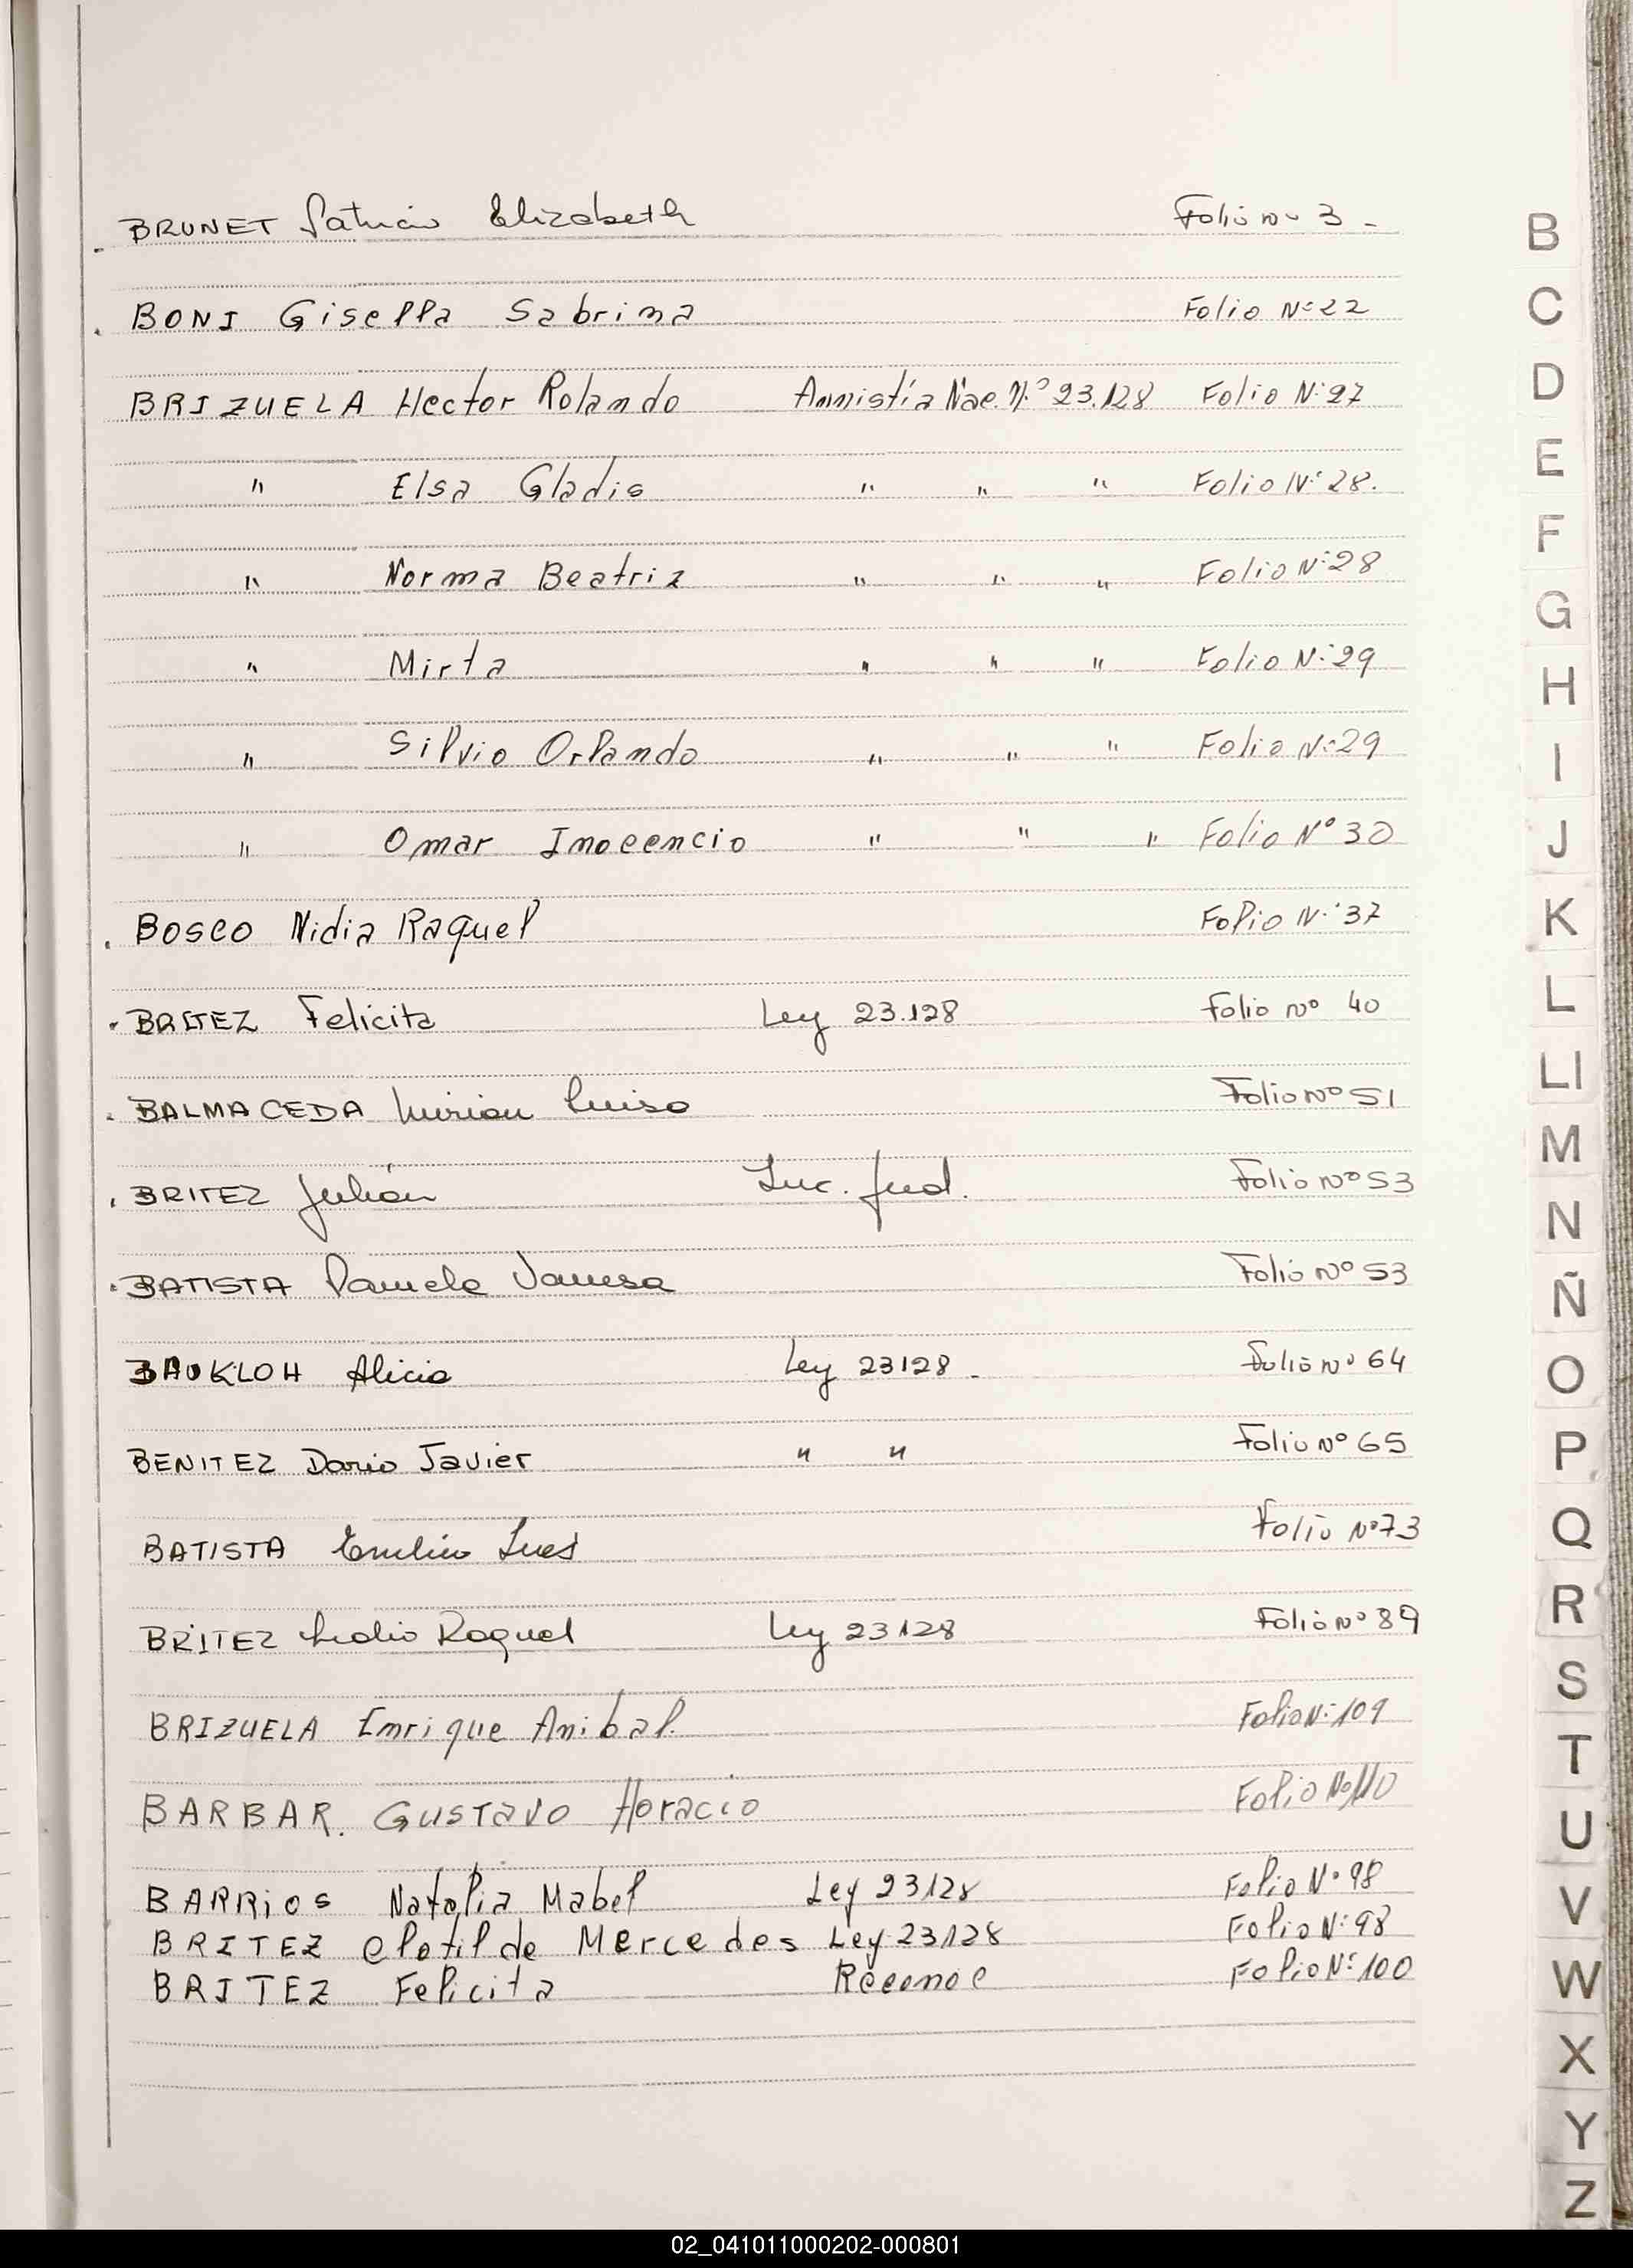 BRUNET Patricia Elizabeth Folio nº 3 -
BONI Gisella Sabrina Folio Nº 22
BRIZUELA Hector Rolando Amnistía Nac. Nº 23.128 Folio Nº 27
" Elsa Gladis " " " Folio Nº 28.
" Norma Beatriz " " " Folio Nº 28
" Mirta " " " Folio Nº 29
" Silvio Orlando " " " Folio Nº 29
" Omar Inocencio " " " Folio Nº 30
BOSCO Nidia Raquel Folio Nº 37
BRITEZ Felicita Ley 23.128 Folio nº 40
BALMACEDA Mirian Luisa Folio nº 51
BRITEZ Julián Jud. Folio nº 53
BATISTA Pamela Vanesa Folio nº 53
BAUKLOH Alicia Ley 23128 - Folio nº 64
BENITEZ Dario Javier " " Folio nº 65
BATISTA Emilio Folio Nº 73
BRITEZ Lidia Raquel Ley 23128 Folio nº 89
BRIZUELA Enrique Anibal. Folio Nº 109
BARBAR. Gustavo Horacio Folio Nº 110
BARRiOS Natalia Mabel Ley 23128 Folio Nº 98
BRITEZ Clotilde Mercedes Ley 23128 Folio Nº 98
BRITEZ Felicita Reconoc Folio Nº 100
B
C
D
E
F
G
H
I
J
K
L
Ll
M
N
Ñ
O
P
Q
R
S
T
U
V
W
X
Y
Z
02_041011000202-000801